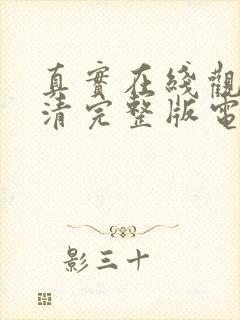 真實在綫觀
清完整版電
影三十